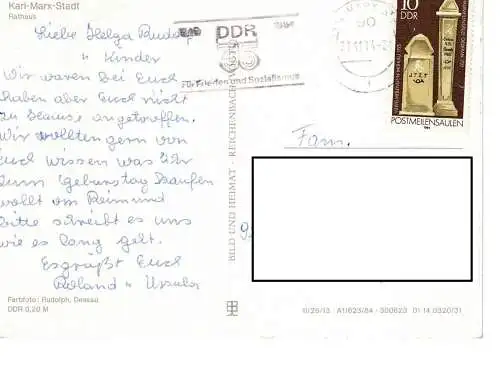 Karl-Marx-Stadt
Rathaus
Liebe Helga Rudolf
u Kinder
Wir waren bei Euch
haben aber Euch nicht
zu Hause angetroffen.
Wir wollten gern von
Euch wissen was Ihr
zum Geburtstag
wollt
bitte schreibt es uns
wie es lang geht.
Es grüßt Euch
Roland u Ursula
Farbfoto: Rudolph, Dessau
DDR 0,20 M
DDR
Für Frieden und Sozialismus
BILD UND HEIMAT · REICHENBACH
10
DDR
POSTMEILENSÄULEN
1984
Fam.
III/26/13 A1/623/84 300623 01 14 0320/31